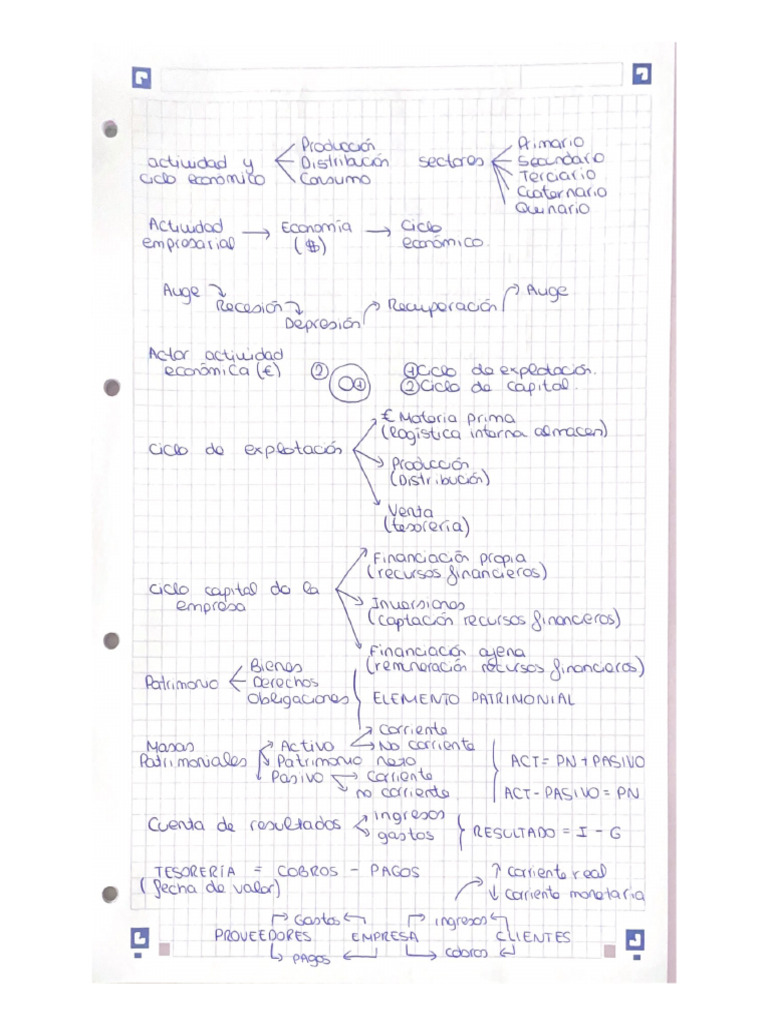 Producción
Primario
actividad y Distribución sectores Secundario
ciclo económico Consumo Terciario
Cuaternario
Quinario
Actividad → Economía → Ciclo
empresarial ($) económico
Auge Recesión Depresión Recuperación Auge
Actor actividad
económica (€) ② ① ①Ciclo de explotación.
②Ciclo de capital.
€ Materia prima
(logística interna almacen)
ciclo de explotación
Producción
(Distribución)
Venta
(tesorería)
Financiación propia
(recursos financieros)
ciclo capital de la
empresa
Inversiones
(captación recursos financieros)
Financiación ajena
(remuneración recursos financieros)
Bienes
Patrimonio Derechos
Obligaciones ELEMENTO PATRIMONIAL
Corriente
Masas Activo No corriente
Patrimoniales Patrimonio neto ACT = PN + PASIVO
Pasivo Corriente
no corriente ACT - PASIVO = PN
ingresos
Cuenta de resultados RESULTADO = I - G
gastos
TESORERÍA = COBROS - PAGOS ↑ corriente real
(fecha de valor) ↓ corriente monetaria
Gastos ingresos
PROVEEDORES EMPRESA CLIENTES
PAGOS cobros